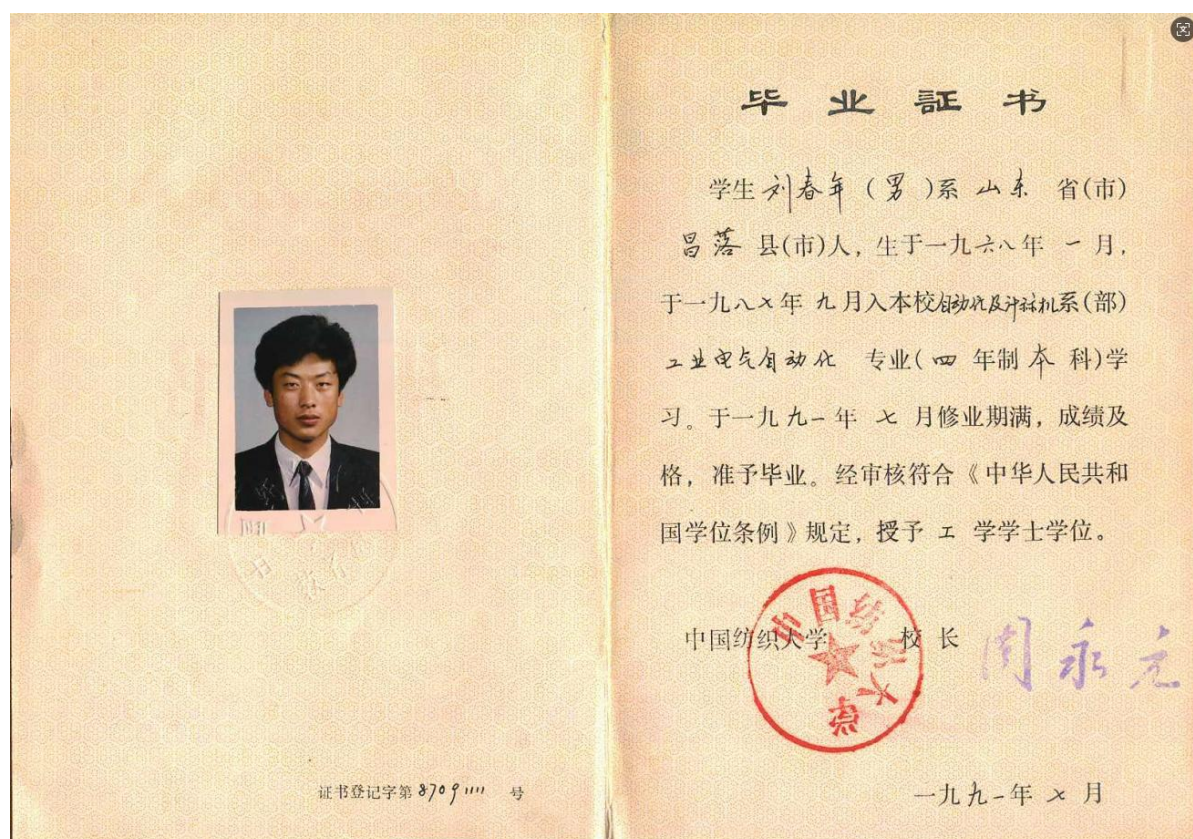 证书登记字第 87091111 号
毕业証书
学生 刘春年 (男)系 山东 省(市)
昌落 县(市)人, 生于一九六八年 一 月,
于一九八七年 九月入本校自动化及计祘机系(部)
工业电气自动化 专业(四 年制 本 科)学
习。于一九九一年 七 月修业期满, 成绩及
格, 准予毕业。经审核符合《中华人民共和
国学位条例》规定, 授予 工 学学士学位。
中国纺织大学 校 长 周永元
中国纺织大学
一九九一年 七 月